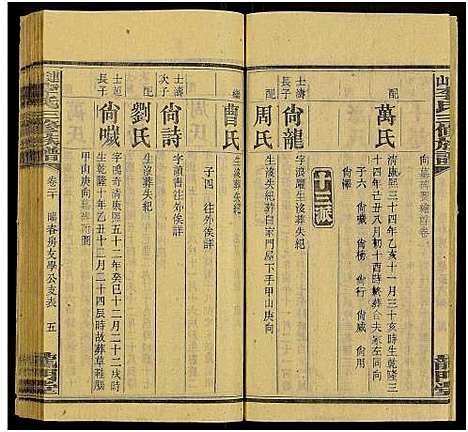 李氏三修族譜
配
萬氏
清康熙三十四年乙亥十一月三十亥時生乾隆三
十四年己丑八月初十酉時終葬合夫冢左同向
子六 尚楊 尚行 尚威
尚濰
十三派
士濤長子
尚龍
字浪躍生歿葬失紀
配
周氏
生歿失紀葬白家門屋下手甲山庚向
繼
曹氏
生歿葬失紀
子四 往外俟詳
士濤次子
尚詩
字讀書往外俟詳
劉氏
生歿葬失紀
士超長子
尚噦
字鳴奇清康熙五十二年癸巳十二月二十二戌時
生乾隆十年乙丑十二月二十四辰時故葬草鞋腦
甲山庚向有圖
李氏三修族譜
卷三十
五
龍門堂